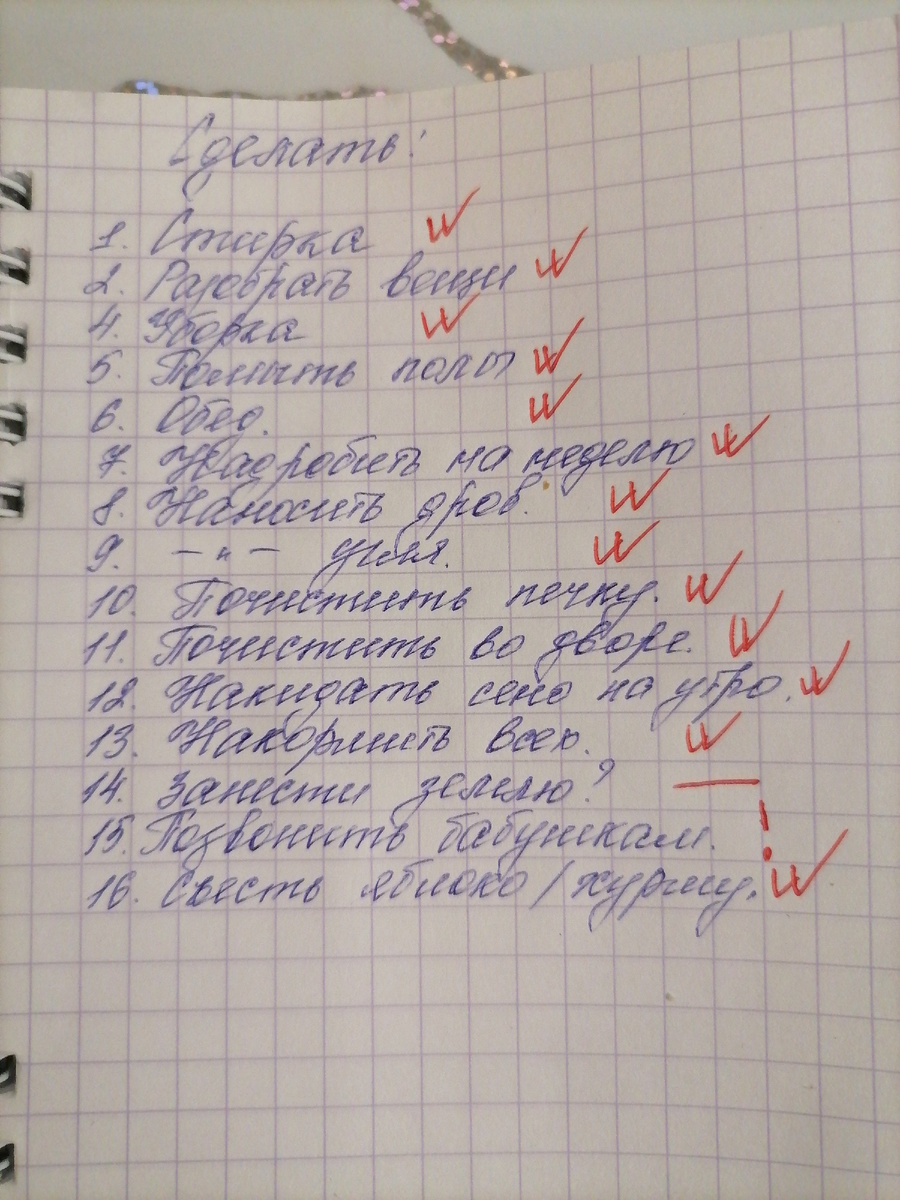 Сделать:
1. Стирка
2. Разобрать вещи
4. Уборка
5. Помыть полы
6. Обед.
7. Надробить на неделю
8. Наносить дров.
9. — " — угля.
10. Почистить печку.
11. Почистить во дворе.
12. Накидать сено на утро.
13. Накормить всех.
14. Занести землю? —
15. Позвонить бабушкам. !
16. Съесть яблоко / хурму.